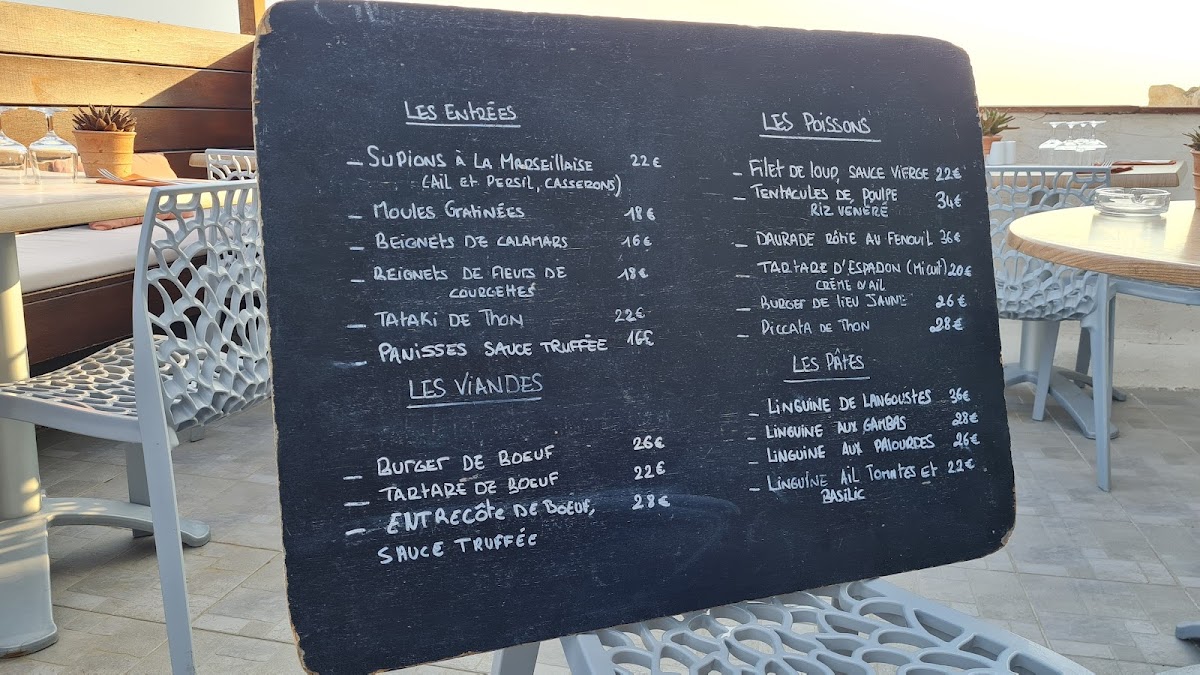 LES ENTRÉES
- SUPIONS À LA MARSEILLAISE 22€
(AIL ET PERSIL, CASSERONS)
- MOULES GRATINÉES 18€
- BEIGNETS DE CALAMARS 16€
- BEIGNETS DE FLEURS DE 18€
COURGETTES
- TATAKI DE THON 22€
- PANISSES SAUCE TRUFFÉE 16€
LES VIANDES
- BURGER DE BOEUF 26€
- TARTARE DE BOEUF 22€
- ENTRECÔTE DE BOEUF, 28€
SAUCE TRUFFÉE
LES POISSONS
- FILET DE LOUP, SAUCE VIERGE 22€
- TENTACULES DE POULPE 34€
RIZ VENÉRÉ
- DAURADE RÔTIE AU FENOUIL 36€
- TARTARE D'ESPADON (MI CUIT) 20€
CRÈME D'AIL
- BURGER DE LIEU JAUNE 26€
- PICCATA DE THON 28€
LES PÂTES
- LINGUINE DE LANGOUSTES 36€
- LINGUINE AUX GAMBAS 28€
- LINGUINE AUX PALOURDES 26€
- LINGUINE AIL TOMATES ET 22€
BASILIC